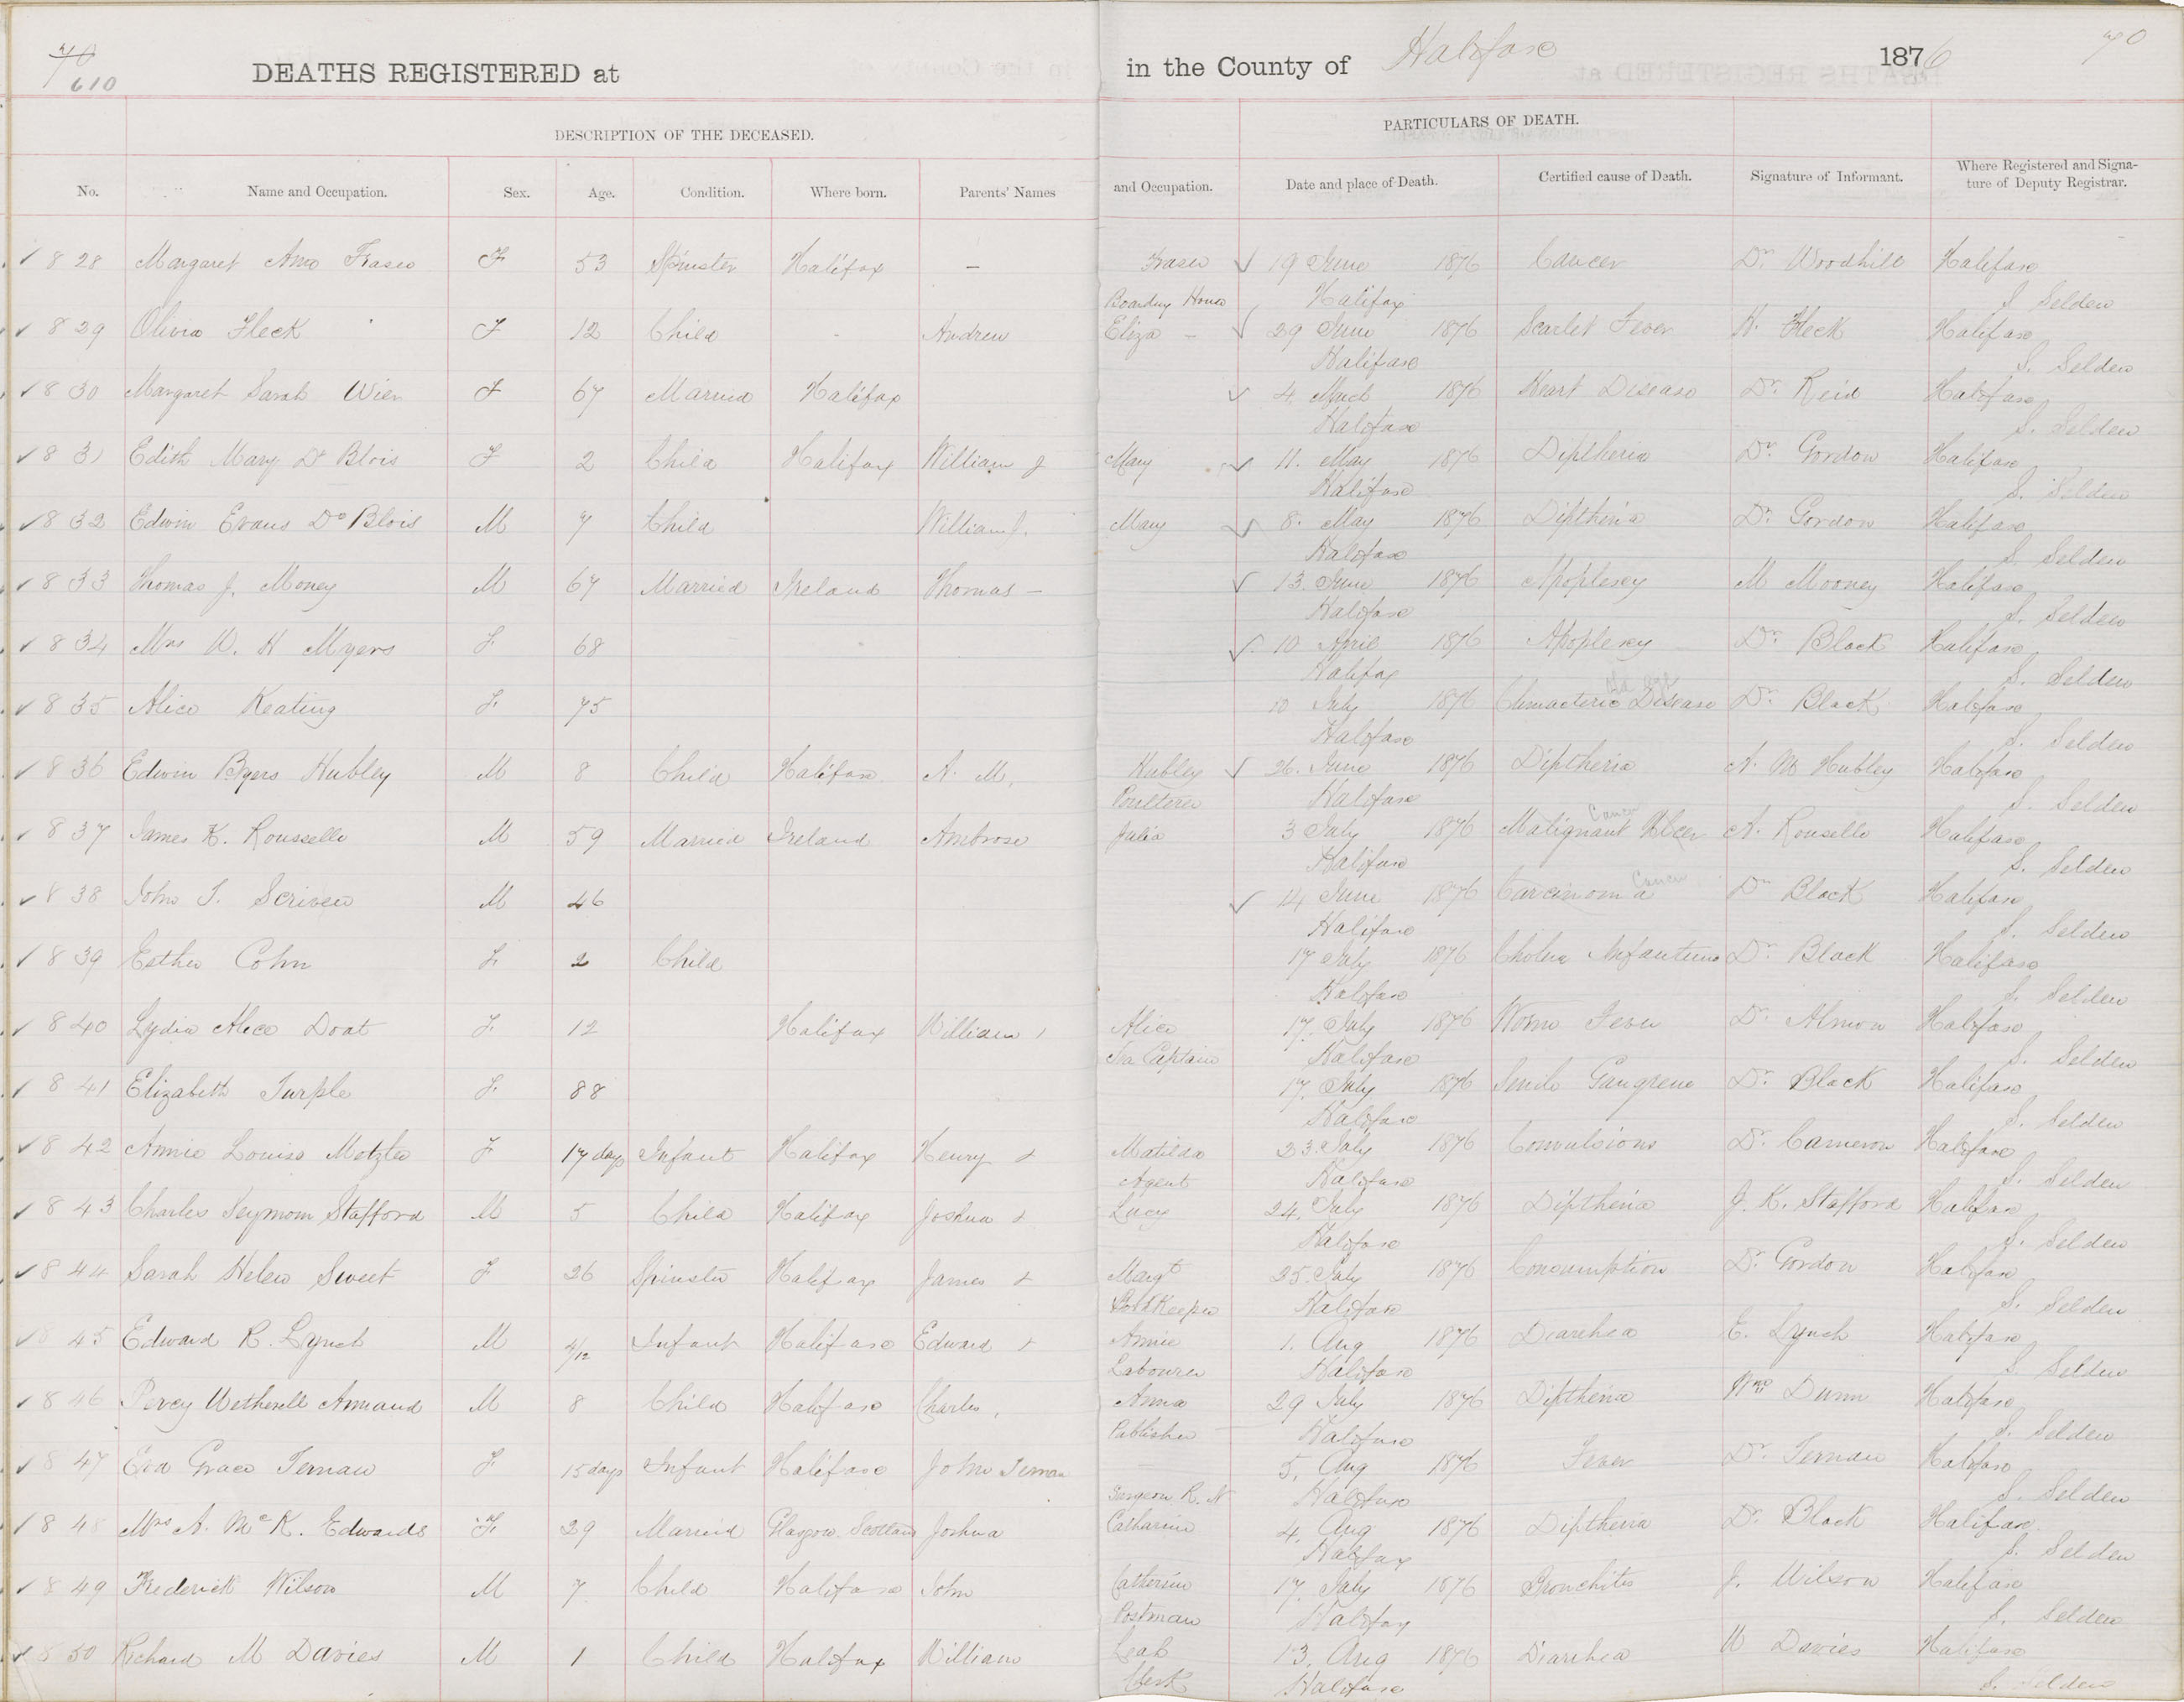 70
610
DEATHS REGISTERED at
in the County of Halifax 1876
70
DESCRIPTION OF THE DECEASED.
PARTICULARS OF DEATH.
No. Name and Occupation. Sex. Age. Condition. Where born. Parents' Names and Occupation. Date and place of Death. Certified cause of Death. Signature of Informant. Where Registered and Signature of Deputy Registrar.
828 Margaret Ann Fraser F 53 Spinster Halifax — Fraser 19 June 1876 Cancer Dr. Woodhill Halifax
Boarding House Halifax S Selden
829 Olivia Fleck F 12 Child - Andrew Eliza - 29 June 1876 Scarlet Fever H. Fleck Halifax
Halifax S. Selden
830 Margaret Sarah Wier F 67 Married Halifax 4 March 1876 Heart Disease Dr. Reid Halifax
Halifax S. Selden
831 Edith Mary De Blois F 2 Child Halifax William J Mary 11. May 1876 Diptheria Dr. Gordon Halifax
Halifax S. Selden
832 Edwin Evans De Blois M 7 Child William J. Mary 8. May 1876 Diptheria Dr. Gordon Halifax
Halifax S. Selden
833 Thomas J. Money M 67 Married Ireland Thomas — 13. June 1876 Apoplexy M Mooney Halifax
Halifax S. Selden
834 Mrs W. H Myers F. 68 10 April 1876 Apoplexy Dr. Black Halifax
Halifax S. Selden
Old Age
835 Alice Keating F. 75 10 July 1876 Climacteric Disease Dr. Black Halifax
Halifax S. Selden
836 Edwin Byers Hubley M 8 Child Halifax A. M. Hubley 26. June 1876 Diptheria A. M Hubley Halifax
Poulterer Halifax S. Selden
Cancer
837 James K. Rousselle M 59 Married Ireland Ambrose Julia 3 July 1876 Malignant Ulcer A. Rouselle Halifax
Halifax S. Selden
Cancer
838 John T. Scriven M 46 14 June 1876 Carcinoma Dr Black Halifax
Halifax S. Selden
839 Esther Cohn F. 2 Child 17 July 1876 Cholera Infantum Dr. Black Halifax
Halifax S. Selden
840 Lydia Alice Doat F. 12 Halifax William Alice 17. July 1876 Worm Fever Dr. Almon Halifax
Sea Captain Halifax S. Selden
841 Elizabeth Turple F. 88 17. July 1876 Senile Gangrene Dr. Black Halifax
Halifax S. Selden
842 Annie Louisa Metzler F 17 days Infant Halifax Henry & Matilda 23. July 1876 Convulsions Dr. Cameron Halifax
Agent Halifax S. Selden
843 Charles Seymour Stafford M 5 Child Halifax Joshua & Lucy 24. July 1876 Diptheria J. K. Stafford Halifax
Halifax S. Selden
844 Sarah Helen Sweet F 26 Spinster Halifax James & Margt 25. July 1876 Consumption Dr. Gordon Halifax
Book Keeper Halifax S. Selden
845 Edward R. Lynch M 4/12 Infant Halifax Edward & Annie 1. Aug 1876 Diarrhea E. Lynch Halifax
Labourer Halifax S Selden
846 Percy Wetherell Annand M 8 Child Halifax Charles, Anna 29 July 1876 Diptheria Dunn Halifax
Publisher Halifax S. Selden
847 Eva Grace Ternan F 15 days Infant Halifax John Ternan 5. Aug 1876 Fever Dr. Ternan Halifax
Surgeon R. N Halifax S. Selden
848 Mrs A. McK. Edwards F. 29 Married Glasgow Scotland Joshua Catharine 4. Aug 1876 Diptheria Dr. Black Halifax
Halifax S. Selden
849 Frederick Wilson M 7 Child Halifax John Catherine 17. July 1876 Bronchitis J. Wilson Halifax
Postman Halifax S. Selden
850 Richard M Davies M 1 Child Halifax William Leah 13. Aug 1876 Diarrhea W Davies Halifax
Clerk Halifax S. Selden